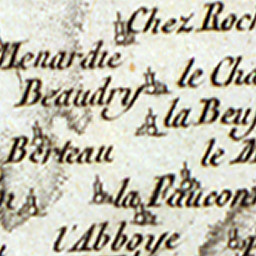 Chez Roch
Menardie
le Cha
Beaudry
la Beuf
Berteau
le M
la Faucon
l'Abboye